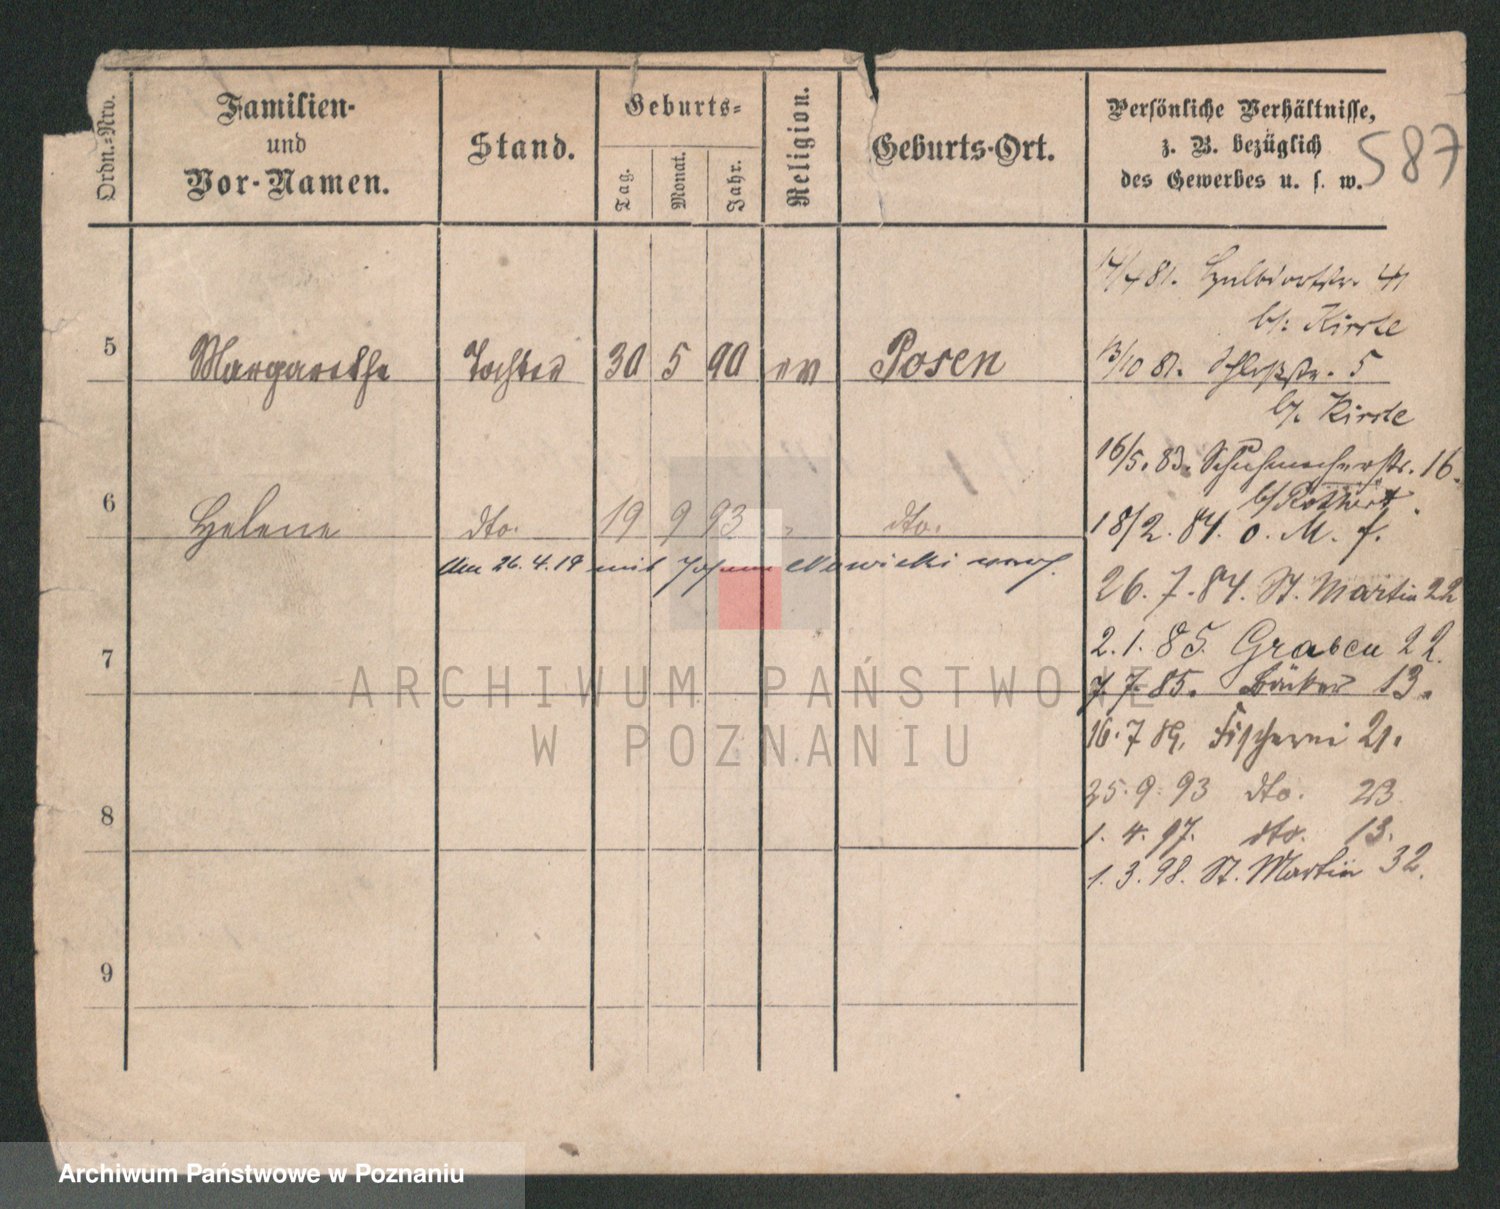 Ordn.-Nro.
Familien-
und
Vor-Namen.
Stand.
Geburts-
Tag.
Monat.
Jahr.
Religion.
Geburts-Ort.
Persönliche Verhältnisse,
z. B. bezüglich
des Gewerbes u. s. w.
587
5 Margarethe Tochter 30 5 90 ev Posen
6 Helene dto. 19 9 93 " dto.
Am 26.4.19 mit Johann Nowicki verh.
7
8
9
14/4 81. Halbdorfstr.
b/: Kirste
13/10 81. Schloßstr. 5
b/. Kirste
16/5. 83. Schuhmacherstr. 16.
b/
18/2. 84. o. M. f.
26. 7. 84. St. Martin 22
2. 1. 85. Graben 22.
7. 7. 85. Bäcker 13.
16. 7 89. Fischerei 21.
25. 9. 93 dto. 23
1. 4. 97. dto. 13.
1. 3. 98. St. Martin 32.
ARCHIWUM PAŃSTWOWE
W POZNANIU
Archiwum Państwowe w Poznaniu